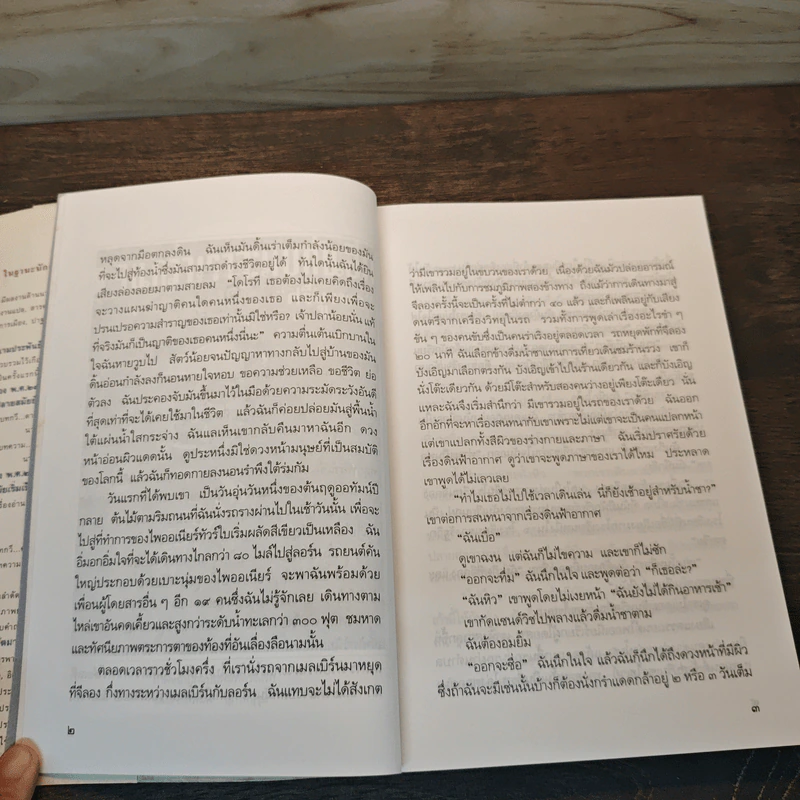 หลุดจากมือตกลงดิน ฉันเห็นมันดิ้นเร่าเต็มกำลังน้อยของมัน
ที่จะไปสู่ท้องน้ำซึ่งมันสามารถดำรงชีวิตอยู่ได้ ทันใดนั้นฉันได้ยิน
เสียงล่องลอยมาตามสายลม “โดโรที เธอต้องไม่เคยคิดถึงเรื่อง
จะวางแผนฆ่าญาติคนใดคนหนึ่งของเธอ และก็เพียงเพื่อจะ
ปรนเปรอความสำราญของเธอเท่านั้นมิใช่หรือ? เจ้าปลาน้อยนั่น แท้
ที่จริงมันก็เป็นญาติของเธอคนหนึ่งนี่นะ” ความตื่นเต้นเบิกบานใน
ใจฉันหายวูบไป สัตว์น้อยจนปัญญาหาทางกลับไปสู่บ้านของมัน
ดิ้นอ่อนกำลังลงก็นอนหายใจหอบ ขอความช่วยเหลือ ขอชีวิต ย่อ
ตัวลง ฉันประคองจับมันขึ้นมาไว้ในมือด้วยความระมัดระวังอันดี
ที่สุดเท่าที่จะได้เคยใช้มาในชีวิต แล้วฉันก็ค่อยปล่อยมันสู่พื้นน้ำ
ใต้แผ่นน้ำใสกระจ่าง ฉันแลเห็นเขากลับคืนมาหาฉันอีก ดวง
หน้าอ่อนผิวแดดนั้น ดูประหนึ่งมิใช่ดวงหน้ามนุษย์ที่เป็นสมบัติ
ของโลกนี้ แล้วฉันก็ทอดกายลงนอนรำพึงใต้ร่มกัม
วันแรกที่ได้พบเขา เป็นวันอุ่นวันหนึ่งของต้นฤดูออทัมน์ปี
กลาย ต้นไม้ตามริมถนนที่ฉันนั่งรถรางผ่านไปในเช้าวันนั้น เพื่อจะ
ไปสู่ที่ทำการของไพออเนียร์ทัวร์ใบเริ่มผลัดสีเขียวเป็นเหลือง ฉัน
อิ่มอกอิ่มใจที่จะได้เดินทางไกลกว่า ๘๐ ไมล์ไปสู่ลอร์น รถยนต์คัน
ใหญ่ประกอบด้วยเบาะนุ่มของไพออเนียร์ จะพาฉันพร้อมด้วย
เพื่อนผู้โดยสารอื่น ๆ อีก ๑๙ คนซึ่งฉันไม่รู้จักเลย เดินทางตาม
ไหล่เขาอันคดเคี้ยวและสูงกว่าระดับน้ำทะเลกว่า ๓๐๐ ฟุต ชมหาด
และทัศนียภาพตระการตาของท้องที่อันเลื่องลือนามนั้น
ตลอดเวลาราวชั่วโมงครึ่ง ที่เรานั่งรถจากเมลเบิร์นมาหยุด
ที่จีลอง กึ่งทางระหว่างเมลเบิร์นกับลอร์น ฉันแทบจะไม่ได้สังเกต
๒
ว่ามีเขารวมอยู่ในขบวนของเราด้วย เนื่องด้วยฉันมัวปล่อยอารมณ์
ให้เพลินไปกับการชมภูมิภาพสองข้างทาง ถึงแม้ว่าการเดินทางมาสู่
จีลองครั้งนี้จะเป็นครั้งที่ไม่ต่ำกว่า ๔๐ แล้ว และก็เพลินอยู่กับเสียง
ดนตรีจากเครื่องวิทยุในรถ รวมทั้งการพูดเล่าเรื่องอะไรขำ ๆ
ขัน ๆ ของคนขับซึ่งเป็นคนร่าเริงอยู่ตลอดเวลา รถหยุดพักที่จีลอง
๒๐ นาที ฉันเลือกข้างดื่มน้ำชาแทนการเที่ยวเดินชมร้านรวง เขาก็
บังเอิญมาเลือกตรงกัน บังเอิญเข้าไปในร้านเดียวกัน และก็บังเอิญ
นั่งโต๊ะเดียวกัน ด้วยมีโต๊ะสำหรับสองคนว่างอยู่เพียงโต๊ะเดียว นั่น
แหละฉันจึงเริ่มสำนึกว่า มีเขารวมอยู่ในรถของเราด้วย ฉันออก
อึกอักที่จะหาเรื่องสนทนากับเขาเพราะไม่แต่เขาจะเป็นคนแปลกหน้า
แต่เขาแปลกทั้งสีผิวของร่างกายและภาษา ฉันเริ่มปราศรัยด้วย
เรื่องดินฟ้าอากาศ ดูว่าเขาจะพูดภาษาของเราได้ไหม ประหลาด
เขาพูดได้ไม่เลวเลย
“ทำไมเธอไม่ไปใช้เวลาเดินเล่น นี่ก็ยังเช้าอยู่สำหรับน้ำชา?”
เขาต่อการสนทนาจากเรื่องดินฟ้าอากาศ
“ฉันเบื่อ”
ดูเขาฉงน แต่ฉันก็ไม่ไขความ และเขาก็ไม่ซัก
“ออกจะทึ่ม” ฉันนึกในใจ และพูดต่อว่า “ก็เธอล่ะ?”
“ฉันหิว” เขาพูดโดยไม่เงยหน้า “ฉันยังไม่ได้กินอาหารเช้า”
เขากัดแซนด์วิชไปพลางแล้วดื่มน้ำชาตาม
ฉันต้องอมยิ้ม
“ออกจะซื่อ” ฉันนึกในใจ แล้วฉันก็นึกได้ถึงดวงหน้าที่มีผิว
ซึ่งถ้าฉันจะมีเช่นนั้นบ้างก็ต้องนั่งกรำแดดกล้าอยู่ ๒ หรือ ๓ วันเต็ม
๓